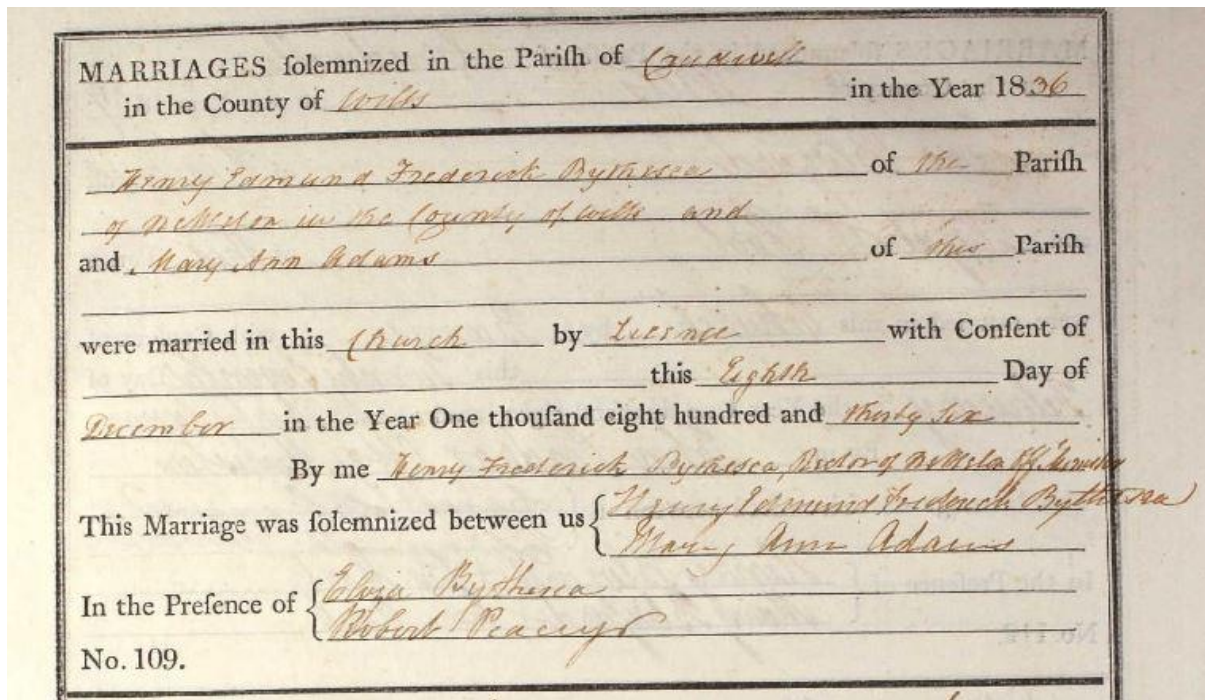 MARRIAGES ſolemnized in the Pariſh of Crudwell
in the County of Wilts in the Year 1836
Henry Edmund Frederick Bythesea of the Pariſh
of Nettleton in the County of Wilts and
and Mary Ann Adams of this Pariſh
were married in this Church by Licence with Conſent of
this Eighth Day of
December in the Year One thouſand eight hundred and thirty six
By me Henry Frederick Bythesea, Rector of Nettleton
This Marriage was ſolemnized between us { Henry Edmund Frederick Bythesea
Mary Ann Adams
In the Preſence of { Eliza Bythesea
Robert
No. 109.